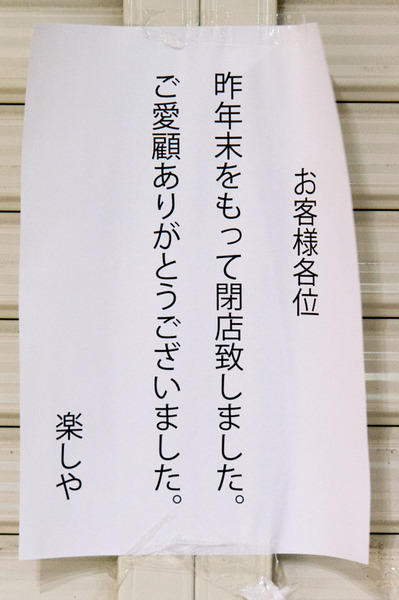 お客様各位
昨年末をもって閉店致しました。
ご愛顧ありがとうございました。
楽しや